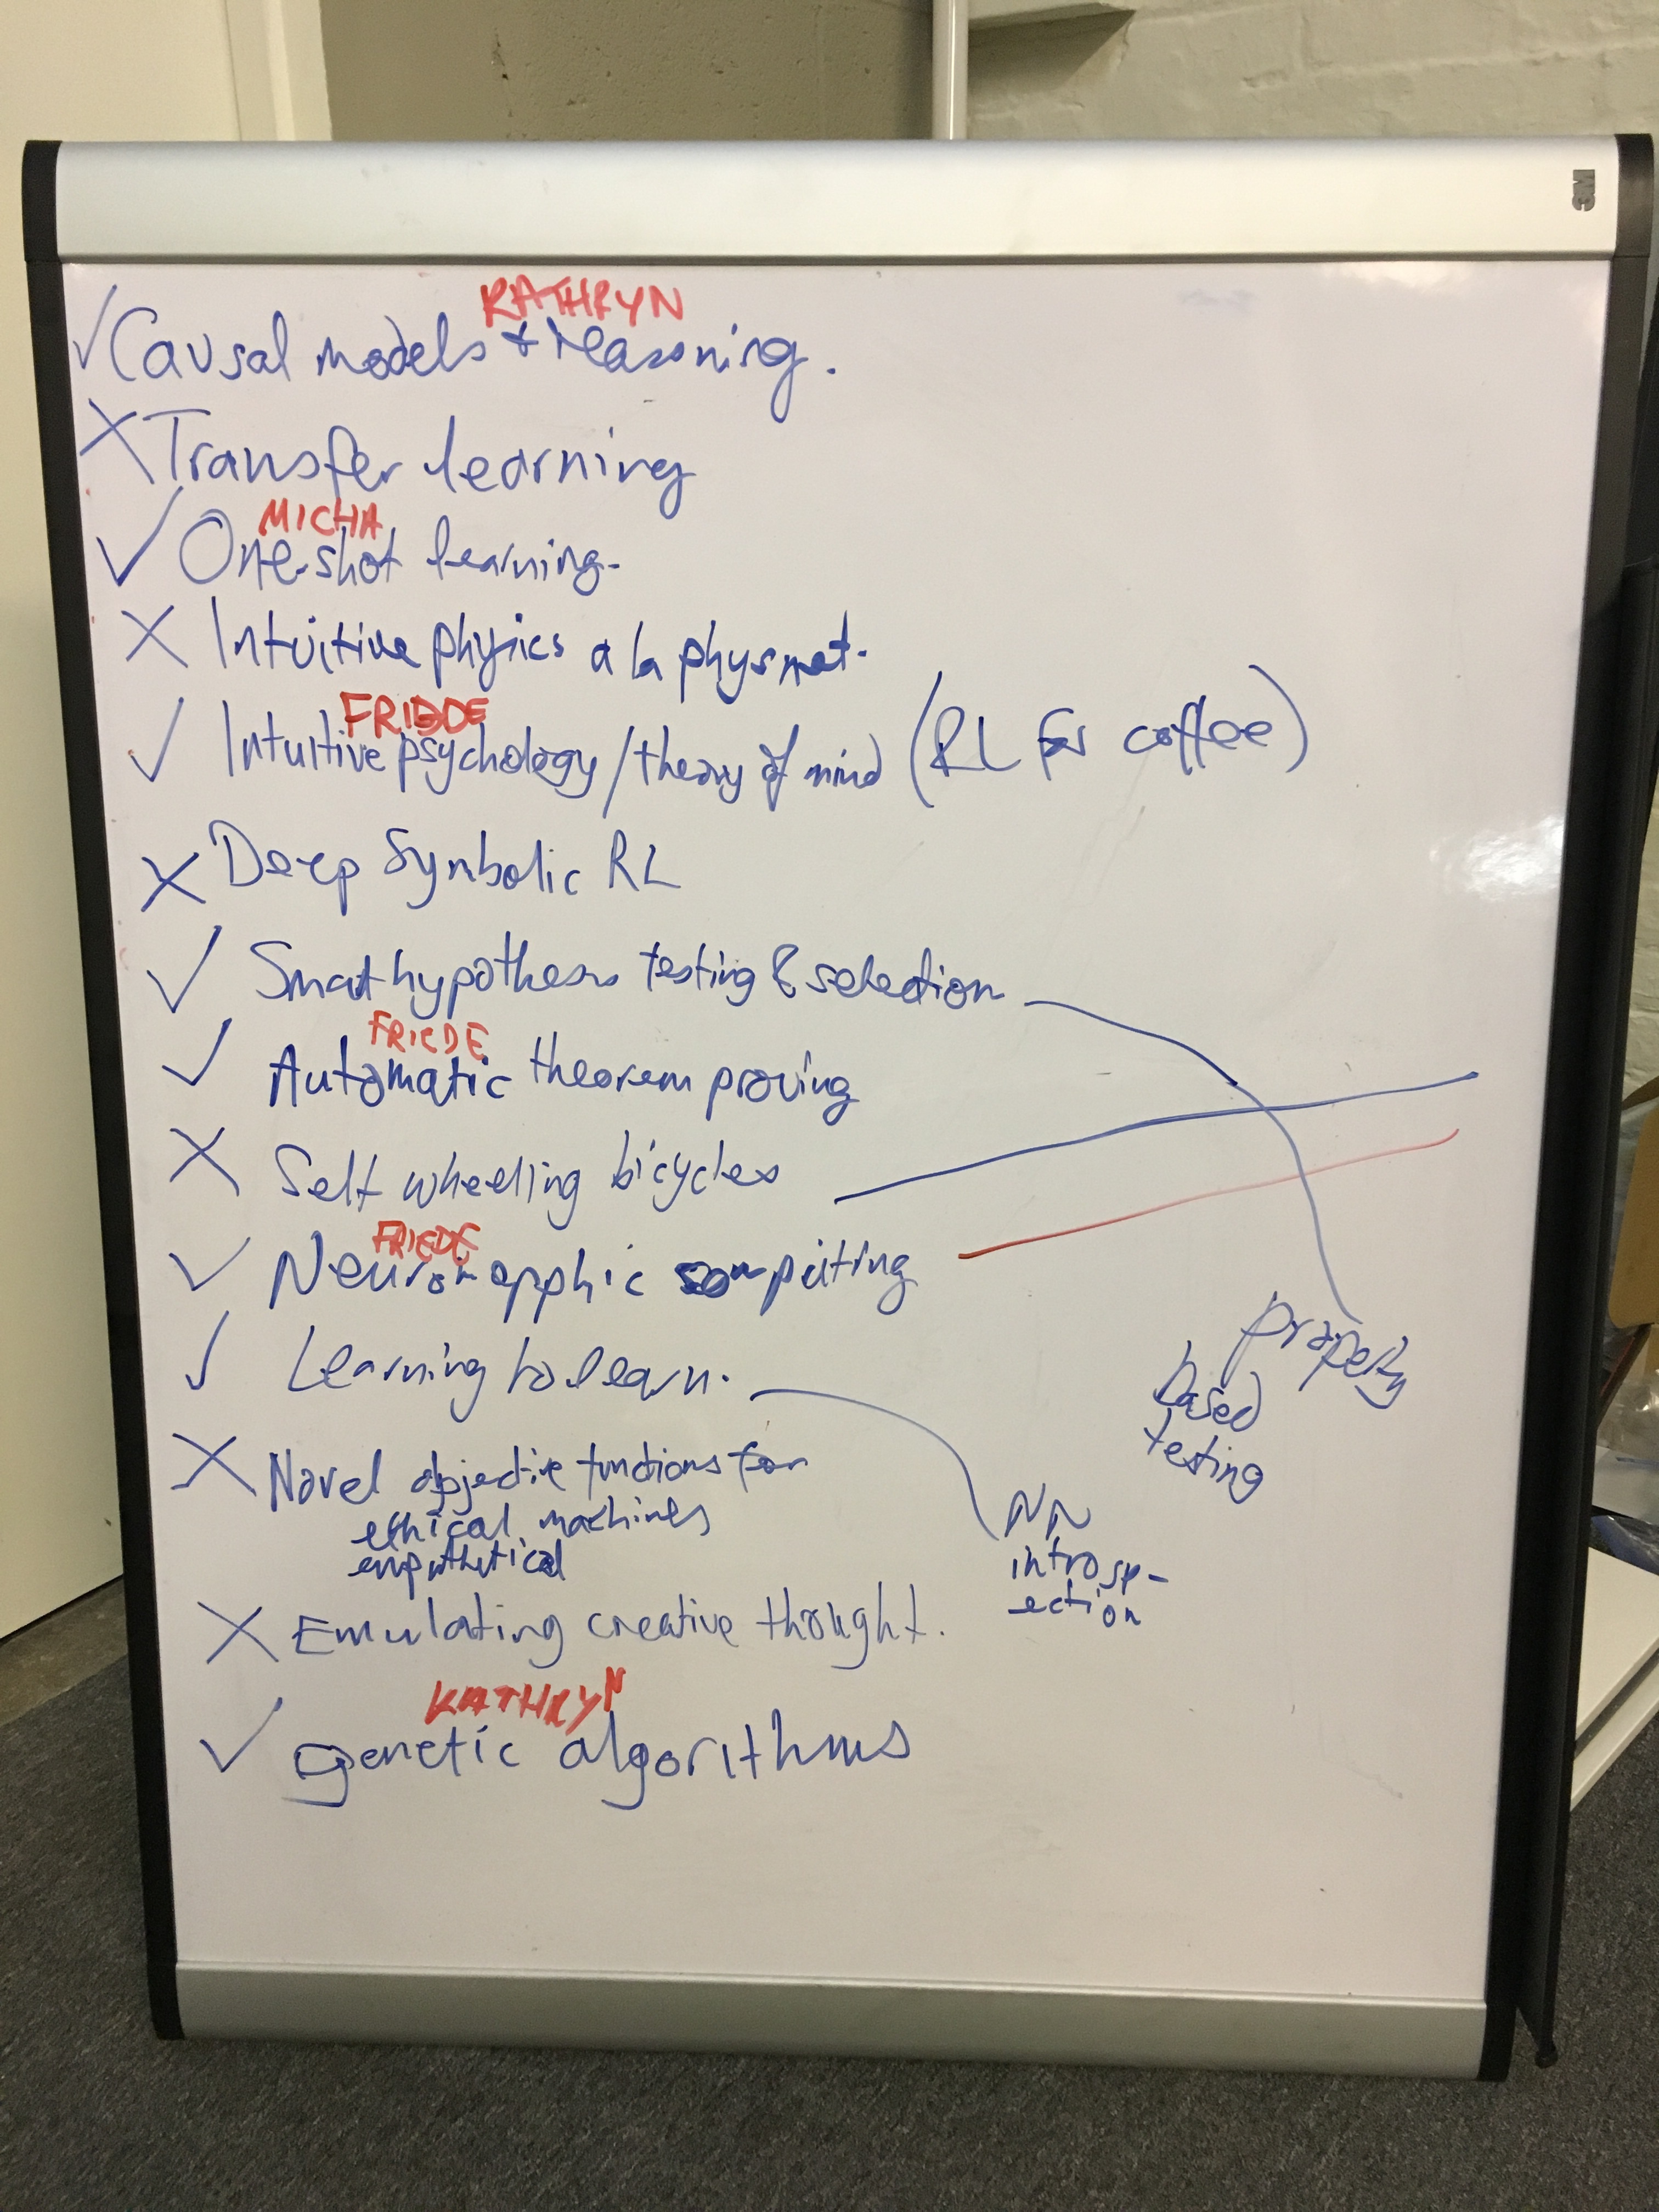 3M
KATHRYN
✓ Causal models + reasoning.
X Transfer learning
MICHA
✓ One-shot learning.
X Intuitive physics a la physnet.
FRIEDE
✓ Intuitive psychology / theory of mind (RL for coffee)
X Deep Symbolic RL
✓ Smart hypothesis testing & selection
FRIEDE
✓ Automatic theorem proving
X Self wheeling bicycles
FRIEDE
✓ Neuromorphic computing
property
based
testing
✓ Learning to learn.
NN
introsp-
ection
X Novel objective functions for
ethical machines
empathetical
X Emulating creative thought.
KATHRYN
✓ genetic algorithms